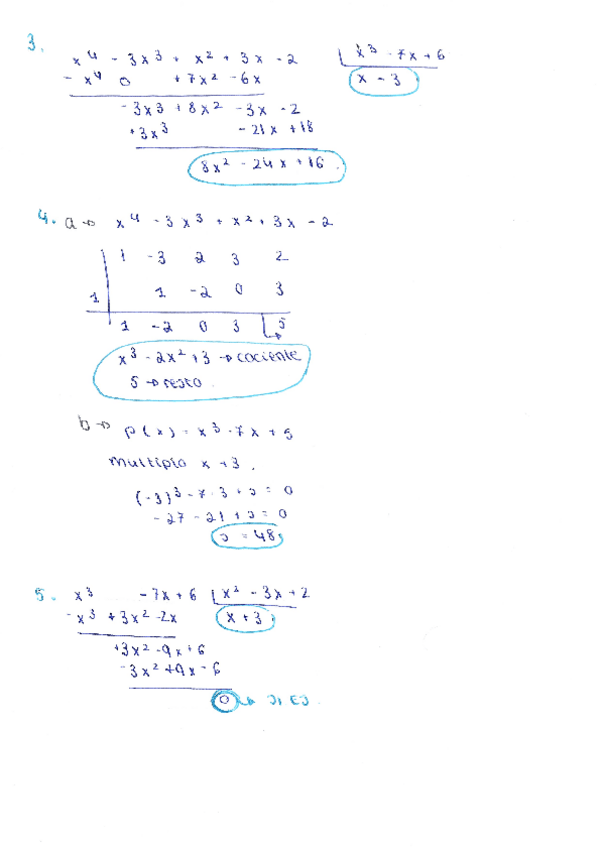 3.
x⁴ - 3x³ + x² + 3x - 2 | x³ - 7x + 6
- x⁴ 0 + 7x² - 6x x - 3
- 3x³ + 8x² - 3x - 2
+ 3x³ - 21x + 18
8x² - 24x + 16
4. a → x⁴ - 3x³ + x² + 3x - 2
1 -3 2 3 2
1 1 -2 0 3
1 -2 0 3 5
x³ - 2x² + 3 → cociente
5 → resto
b → p(x) = x³ - 7x + s
multiplo x + 3.
(-3)³ - 7·3 + s = 0
- 27 - 21 + s = 0
s = 48
5. x³ - 7x + 6 | x² - 3x + 2
- x³ + 3x² - 2x x + 3
+3x² - 9x + 6
- 3x² + 9x - 6
0 → SI ES